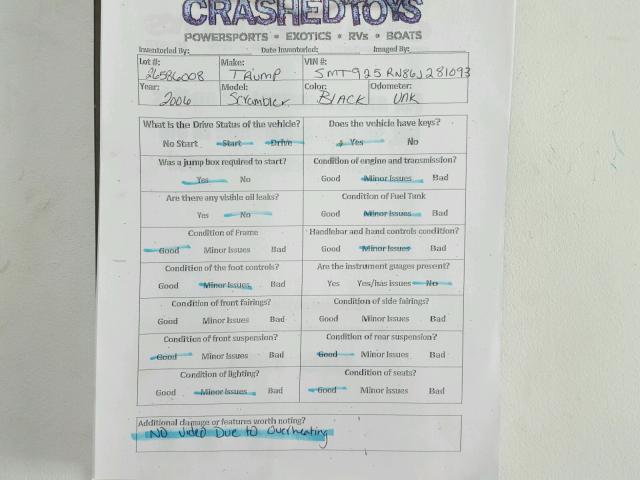 CRASHEDTOYS
POWERSPORTS • EXOTICS • RVs • BOATS
Inventoried By: Date Inventoried: Imaged By:
Lot #: Make: VIN #:
26586008 TRIUMP SMT925RN86J281093
Year: Model: Color: Odometer:
2006 Scrambler BLACK UNK
What is the Drive Status of the vehicle? Does the vehicle have keys?
No Start Start Drive Yes No
Was a jump box required to start? Condition of engine and transmission?
Yes No Good Minor Issues Bad
Are there any visible oil leaks? Condition of Fuel Tank
Yes No Good Minor Issues Bad
Condition of Frame Handlebar and hand controls condition?
Good Minor Issues Bad Good Minor Issues Bad
Condition of the foot controls? Are the instrument guages present?
Good Minor Issues Bad Yes Yes/has issues No
Condition of front fairings? Condition of side fairings?
Good Minor Issues Bad Good Minor Issues Bad
Condition of front suspension? Condition of rear suspension?
Good Minor Issues Bad Good Minor Issues Bad
Condition of lighting? Condition of seats?
Good Minor Issues Bad Good Minor Issues Bad
Additional damage or features worth noting?
No video Due to overheating